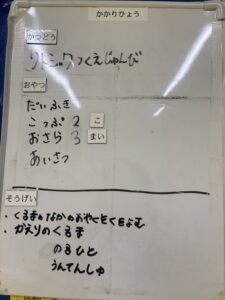 かかりひょう
かつどう
リトミックつくえじゅんび
おやつ
だいふき
こっぷ 2 こ
おさら 3 まい
あいさつ
そうげい
・くるまのなかのおやくそくをよむ
・かえりのくるま
のるひと
うんてんしゅ